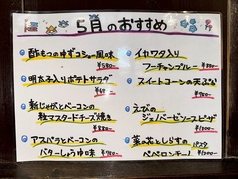 5月のおすすめ
酢もつのゆずコショー風味
¥580-
明太子入りポテトサラダ
新じゃがとベーコンの
粒マスタードチーズ焼き
¥880-
アスパラとベーコンの
バターしょうゆ味 ¥980-
イカワタ入り
フーチャンプルー ¥880-
スイートコーンの天ぷら
¥780-
えびの
ジェノバーゼソースピザ
¥1200-
菜の花としらすの
ペペロンチーノ パスタ
¥1200-